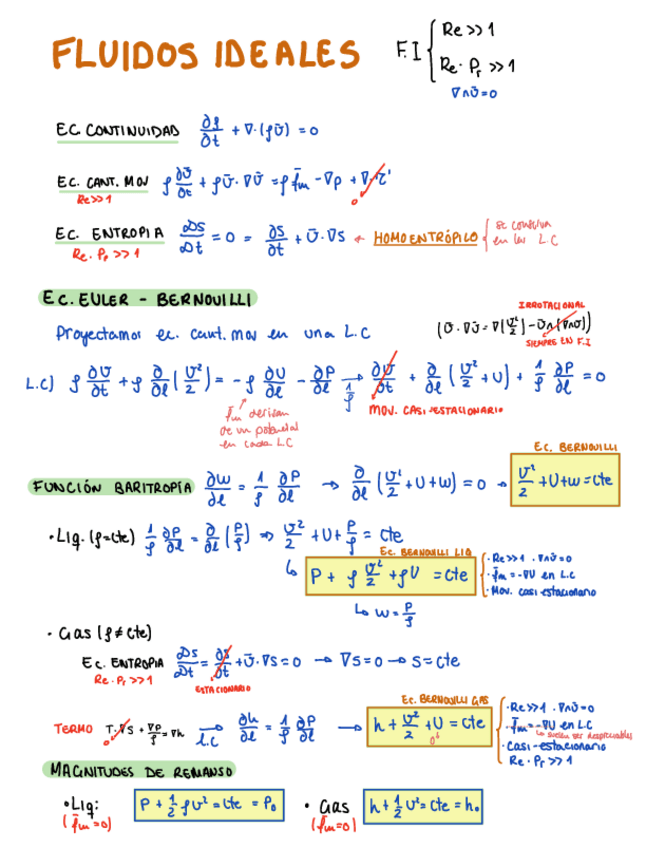 FLUIDOS IDEALES F.I { Re >> 1
Re · Pr >> 1
∇∧ῡ=0
EC. CONTINUIDAD ∂ρ/∂t + ∇·(ρῡ) = 0
EC. CANT. MOV ρ ∂ῡ/∂t + ρῡ·∇ῡ = ρ f̄m - ∇p + ∇·τ̄' 0
Re>>1
EC. ENTROPIA DS/Dt = 0 = ∂S/∂t + ῡ·∇S ← HOMOENTRÓPICO { se conserva en las L.C
Re·Pr >> 1
EC. EULER - BERNOUILLI
IRROTACIONAL
Proyectamos ec. cant. mov en una L.C (ῡ·∇ῡ = ∇(v²/2) - ῡ∧(∇∧ῡ))
SIEMPRE EN F.I
L.C) ρ ∂v/∂t + ρ ∂/∂l (v²/2) = -ρ ∂U/∂l - ∂P/∂l → 1/ρ ∂v/∂t + ∂/∂l (v²/2 + U) + 1/ρ ∂P/∂l = 0
MOV. CASI-ESTACIONARIO
f̄m derivan
de un potencial
en cada L.C
EC. BERNOUILLI
FUNCIÓN BARITROPÍA ∂w/∂l = 1/ρ ∂P/∂l → ∂/∂l (v²/2 + U + w) = 0 → v²/2 + U + w = cte
· Liq. (ρ=cte) 1/ρ ∂P/∂l = ∂/∂l (P/ρ) ⇒ v²/2 + U + P/ρ = cte
EC. BERNOUILLI LIQ
↳ P + ρ v²/2 + ρU = cte { · Re>>1 · ∇∧ῡ=0
· f̄m = -∇U en L.C
· Mov. casi estacionario
↳ w = P/ρ
· Gas (ρ≠cte)
EC. ENTROPIA DS/Dt = ∂S/∂t + ῡ·∇S = 0 → ∇S = 0 → S = cte
Re·Pr >> 1 ESTACIONARIO
EC. BERNOUILLI GAS
TERMO T·∇S + ∇P/ρ = ∇h → L.C ∂h/∂l = 1/ρ ∂P/∂l → h + v²/2 + U = cte { · Re>>1 · ∇∧ῡ=0
0
· f̄m = -∇U en L.C
↳ suelen ser despreciables
· Casi-estacionario
Re·Pr >> 1
MAGNITUDES DE REMANSO
· Liq: P + 1/2 ρv² = cte = P₀ · Gas h + 1/2 v² = cte = h₀
(f̄m=0) (f̄m=0)